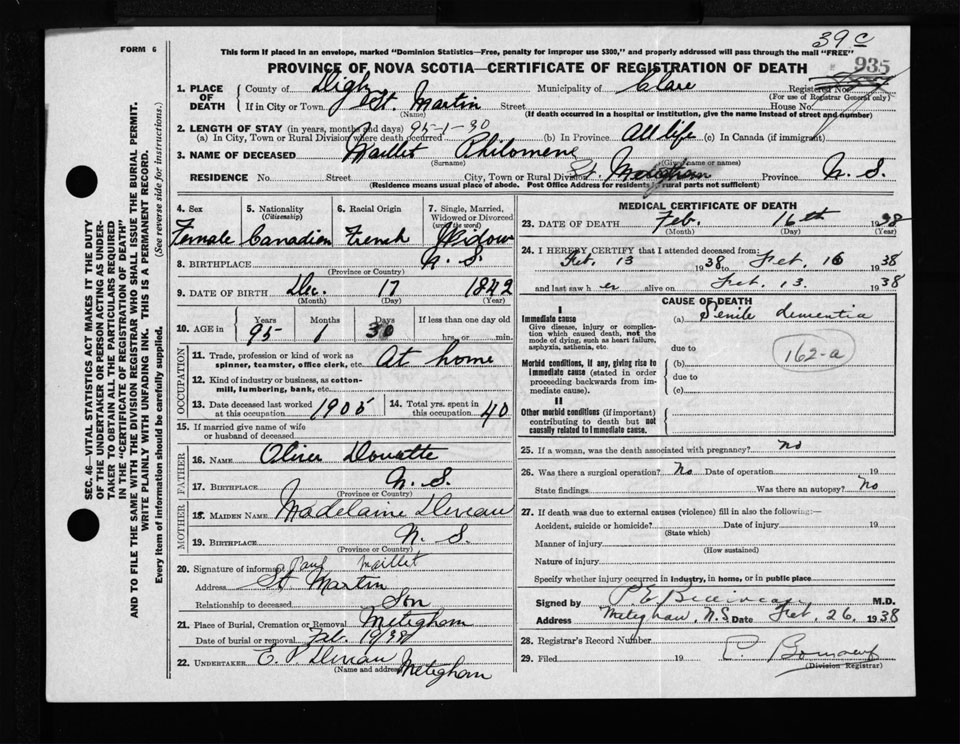 39 c
FORM 6
This form if placed in an envelope, marked "Dominion Statistics—Free, penalty for improper use $300," and properly addressed will pass through the mail "FREE"
PROVINCE OF NOVA SCOTIA—CERTIFICATE OF REGISTRATION OF DEATH
935
1. PLACE OF DEATH
County of Digby Municipality of Clare Registered No.
(For use of Registrar General only)
If in City or Town St. Martin Street House No.
(Name) (If death occurred in a hospital or institution, give the name instead of street and number)
2. LENGTH OF STAY (in years, months and days)
(a) In City, Town or Rural Division where death occurred 95-1-30 (b) In Province All life (c) In Canada (if immigrant)
3. NAME OF DECEASED Maillet Philomene
(Surname) (Given name or names)
RESIDENCE No. Street City, Town or Rural Division St. Province N. S.
(Residence means usual place of abode. Post Office Address for residents rural parts not sufficient)
4. Sex Female
5. Nationality (Citizenship) Canadian
6. Racial Origin French
7. Single, Married, Widowed or Divorced (write the word) Widow
8. BIRTHPLACE N. S.
(Province or Country)
9. DATE OF BIRTH Dec. 17 1842
(Month) (Day) (Year)
10. AGE in Years 95 Months 1 Days 30 If less than one day old
hrs. or min.
OCCUPATION
11. Trade, profession or kind of work as spinner, teamster, office clerk, etc. At home
12. Kind of industry or business, as cotton-mill, lumbering, bank, etc.
13. Date deceased last worked at this occupation 1905
14. Total yrs. spent in this occupation 40
15. If married give name of wife or husband of deceased
FATHER
16. NAME Oliver Doucette
17. BIRTHPLACE N. S.
(Province or Country)
MOTHER
18. MAIDEN NAME Madelaine Deveau
19. BIRTHPLACE N. S.
(Province or Country)
20. Signature of informant Paul Maillet
Address St. Martin
Relationship to deceased Son
21. Place of Burial, Cremation or Removal Meteghan
Date of burial or removal Feb. 19/38
22. UNDERTAKER E. P. Deveau Meteghan
(Name and address)
MEDICAL CERTIFICATE OF DEATH
23. DATE OF DEATH Feb. 16th 1938
(Month) (Day) (Year)
24. I HEREBY CERTIFY that I attended deceased from:
Feb. 13 1938 to Feb. 16 1938
and last saw her alive on Feb. 13. 1938
CAUSE OF DEATH
Immediate cause
Give disease, injury or complication which caused death, not the mode of dying, such as heart failure, asphyxia, asthenia, etc.
(a) Senile dementia
due to
162-a
Morbid conditions, if any, giving rise to immediate cause (stated in order proceeding backwards from immediate cause).
(b)
due to
(c)
II
Other morbid conditions (if important) contributing to death but not causally related to immediate cause.
25. If a woman, was the death associated with pregnancy? no
26. Was there a surgical operation? No Date of operation 19
State findings Was there an autopsy? No
27. If death was due to external causes (violence) fill in also the following:—
Accident, suicide or homicide? Date of injury 19
(State which)
Manner of injury
(How sustained)
Nature of injury
Specify whether injury occurred in industry, in home, or in public place
Signed by P. E. M.D.
Address Meteghan, N.S. Date Feb. 26. 1938
28. Registrar's Record Number
29. Filed 19
(Division Registrar)
SEC. 46—VITAL STATISTICS ACT MAKES IT THE DUTY
OF THE UNDERTAKER OR PERSON ACTING AS UNDER-
TAKER TO OBTAIN ALL THE PARTICULARS REQUIRED
IN THE "CERTIFICATE OF REGISTRATION OF DEATH"
AND TO FILE THE SAME WITH THE DIVISION REGISTRAR WHO SHALL ISSUE THE BURIAL PERMIT.
WRITE PLAINLY WITH UNFADING INK. THIS IS A PERMANENT RECORD.
Every item of information should be carefully supplied. (See reverse side for instructions.)